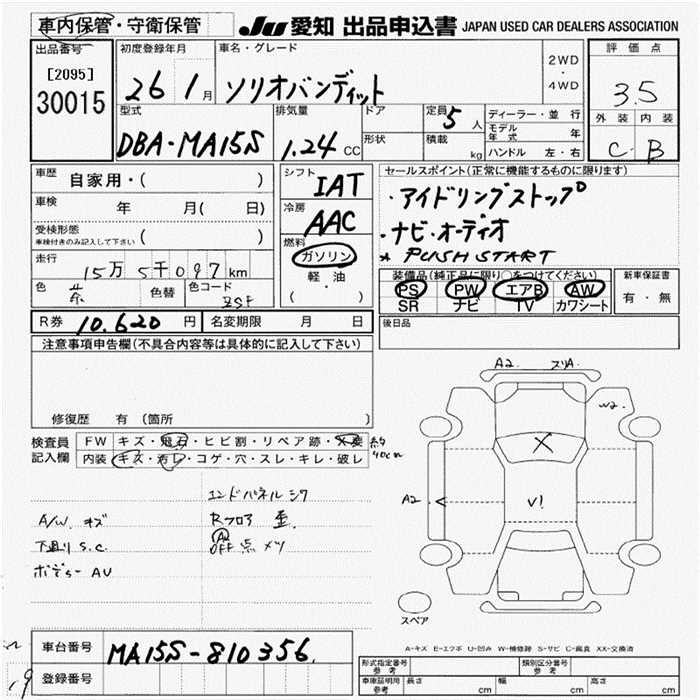 車内保管・守衛保管
JU 愛知 出品申込書 JAPAN USED CAR DEALERS ASSOCIATION
出品番号
[2095]
30015
初度登録年月
26 1月
車名・グレード
ソリオバンディット
2WD
・
4WD
評価点
3.5
外装 内装
C B
型式
DBA-MA15S
排気量
1.24 CC
ドア
形状
定員 5人
積載 kg
ディーラー・並行
モデル年式 年
ハンドル 左・右
車歴 自家用・( )
車検 年 月( 日)
受検形態
車検付きのみ記入して下さい ( )
走行
15万5千097km
色 茶 色替 色コード ZSF
シフト IAT
冷房 AAC
燃料
ガソリン
軽・油
( )
セールスポイント(正常に機能するものに限ります)
・アイドリングストップ
・ナビ・オーディオ
★ PUSH START
装備品(純正品に限り○をつけてください)
PS PW エアB AW
SR ナビ TV カワシート
新車保証書
有・無
R券 10.620円 名変期限 月 日
後日品
注意事項申告欄(不具合内容等は具体的に記入して下さい)
修復歴 有(箇所 )
検査員記入欄
FW キズ・飛石・ヒビ割・リペア跡・X要 約40cm
内装 キズ・汚レ・コゲ・穴・スレ・キレ・破レ
エンドパネルシワ
A/W. キズ Rフロア 歪.
下廻り S.C. A2
OFF 点 メツ
ボデー AU
A2 スリA.
W2
X
A2
V!
スペア
A-キズ E-エクボ U-凹み W-補修跡 S-サビ C-腐食 XX-交換済
車台番号 MA15S-810356.
登録番号
形式指定番号 参考
類別区分番号 参考
車庫証明用 参考 長さ cm 幅 cm 高さ cm